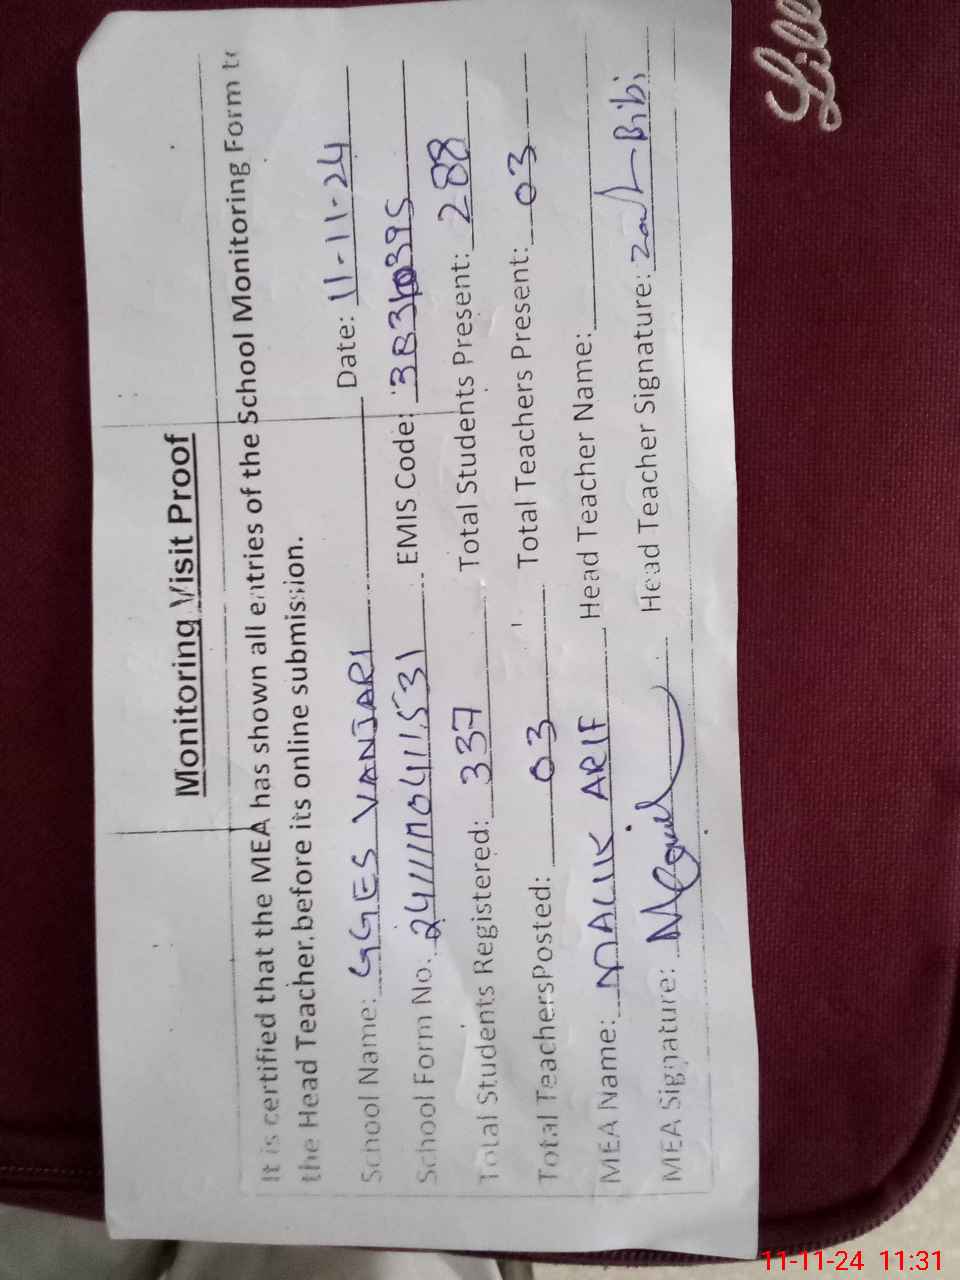 Monitoring Visit Proof
It is certified that the MEA has shown all entries of the School Monitoring Form to
the Head Teacher before its online submission.
School Name: GGES VANJARI Date: 11-11-24
School Form No: EMIS Code:
Total Students Registered: 337 Total Students Present: 288
Total TeachersPosted: 03 Total Teachers Present: 03
MEA Name: MALIK ARIF Head Teacher Name:
MEA Signature: Head Teacher Signature: Bibi
11-11-24 11:31